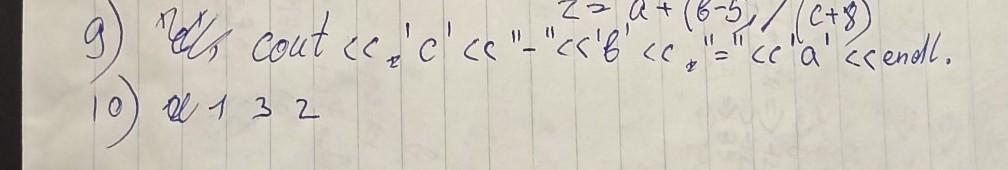 z = a + (b-5) / (c+8)
9) cout << 'c' << "-" << 'b' << "=" << 'a' << endl.
10) 1 3 2